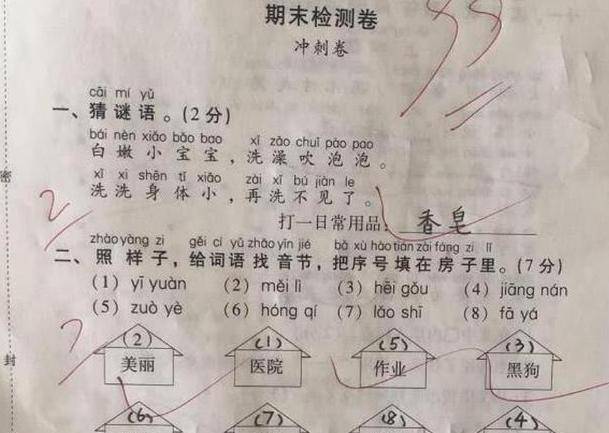 期末检测卷
冲刺卷
cāi mí yǔ
一、猜谜语。(2分)
bái nèn xiǎo bǎo bao xǐ zǎo chuī pào pao
白嫩小宝宝，洗澡吹泡泡。
xǐ xi shēn tǐ xiǎo zài xǐ bú jiàn le
洗洗身体小，再洗不见了。
打一日常用品：香皂
2
zhào yàng zi gěi cí yǔ zhǎo yīn jié bǎ xù hào tián zài fáng zi lǐ
二、照样子，给词语找音节，把序号填在房子里。(7分)
(1) yī yuàn (2) měi lì (3) hēi gǒu (4) jiāng nán
(5) zuò yè (6) hóng qí (7) lǎo shī (8) fā yá
7
(2) (1) (5) (3)
美丽 医院 作业 黑狗
(6) (7) (8) (4)
密
封